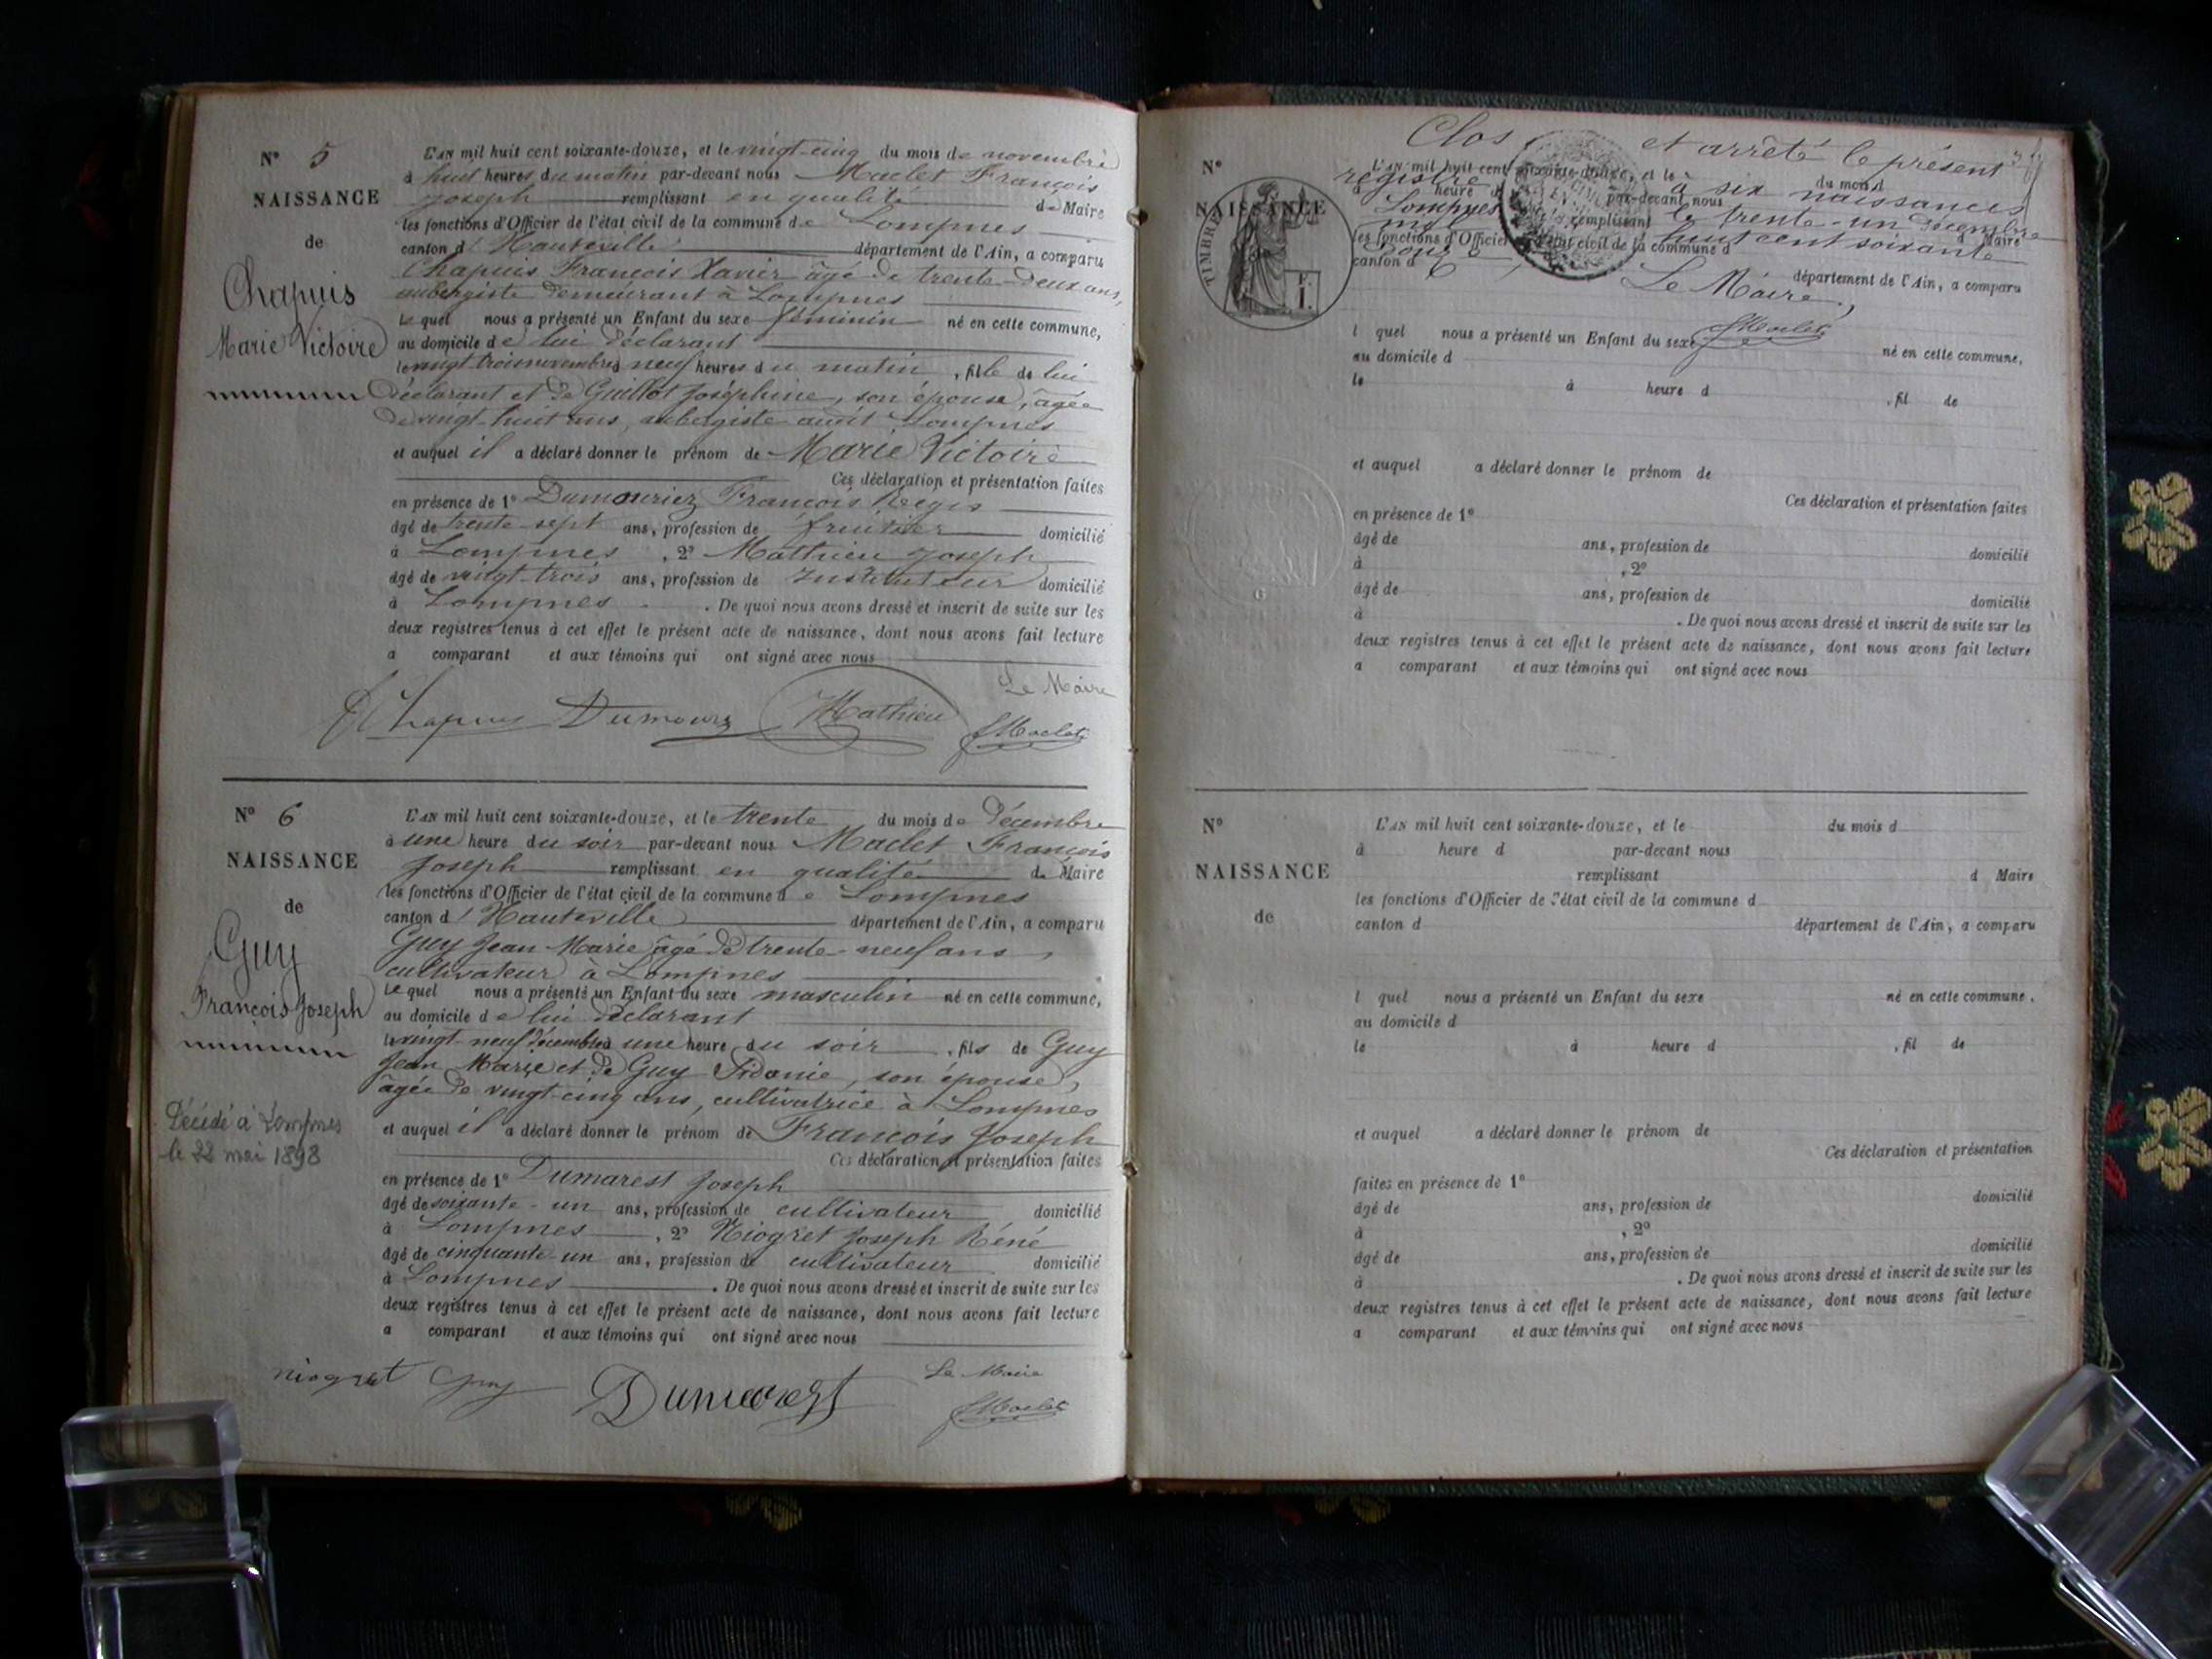 N° 5
NAISSANCE
de
Chapuis
Marie Victoire
L'AN mil huit cent soixante-douze, et le vingt-cinq du mois de novembre
à huit heures du matin par-devant nous Maclet François
Joseph remplissant en qualité de Maire
les fonctions d'Officier de l'état civil de la commune de Lompnes
canton d'Hauteville département de l'Ain, a comparu
Chapuis François Xavier âgé de trente-deux ans,
aubergiste demeurant à Lompnes
Lequel nous a présenté un Enfant du sexe féminin né en cette commune,
au domicile de lui déclarant
le vingt trois novembre à neuf heures du matin, fille de lui
déclarant et de Guillot Joséphine, son épouse, âgée
de vingt-huit ans, aubergiste audit Lompnes
et auquel il a déclaré donner le prénom de Marie Victoire
Ces déclaration et présentation faites
en présence de 1° Dumouriez François Régis
âgé de trente-sept ans, profession de fruitier domicilié
à Lompnes, 2° Mathieu Joseph
âgé de vingt-trois ans, profession de Instituteur domicilié
à Lompnes. De quoi nous avons dressé et inscrit de suite sur les
deux registres tenus à cet effet le présent acte de naissance, dont nous avons fait lecture
a comparant et aux témoins qui ont signé avec nous
Le Maire
Chapuis Dumouriez Mathieu Maclet
N° 6
NAISSANCE
de
Guy
François Joseph
Décédé à Lompnes
le 22 mai 1898
L'AN mil huit cent soixante-douze, et le trente du mois de Décembre
à une heure du soir par-devant nous Maclet François
Joseph remplissant en qualité de Maire
les fonctions d'Officier de l'état civil de la commune de Lompnes
canton d'Hauteville département de l'Ain, a comparu
Guy Jean-Marie âgé de trente-neuf ans,
cultivateur à Lompnes
Lequel nous a présenté un Enfant du sexe masculin né en cette commune,
au domicile de lui déclarant
le vingt-neuf décembre à une heure du soir, fils de Guy
Jean Marie et de Guy Sidonie, son épouse,
âgée de vingt-cinq ans, cultivatrice à Lompnes
et auquel il a déclaré donner le prénom de François Joseph
Ces déclaration et présentation faites
en présence de 1° Dumarest Joseph
âgé de soixante-un ans, profession de cultivateur domicilié
à Lompnes, 2° Niogret Joseph Réné
âgé de cinquante-un ans, profession de cultivateur domicilié
à Lompnes. De quoi nous avons dressé et inscrit de suite sur les
deux registres tenus à cet effet le présent acte de naissance, dont nous avons fait lecture
a comparant et aux témoins qui ont signé avec nous
Le Maire
niogret Guy Dumarest Maclet
Clos et arrêté le présent
registre à six naissances
Lompnes le trente-un décembre
mil huit cent soixante
douze
Le Maire,
Maclet
N°
NAISSANCE
TIMBRE
F.
1.
L'AN mil huit cent soixante-douze, et le du mois d
à heure d par-devant nous
remplissant d Maire
les fonctions d'Officier de l'état civil de la commune d
canton d département de l'Ain, a comparu
l quel nous a présenté un Enfant du sexe né en cette commune,
au domicile d
le à heure d , fil de
et auquel a déclaré donner le prénom de
Ces déclaration et présentation faites
en présence de 1°
âgé de ans, profession de domicilié
à , 2°
âgé de ans, profession de domicilié
à . De quoi nous avons dressé et inscrit de suite sur les
deux registres tenus à cet effet le présent acte de naissance, dont nous avons fait lecture
a comparant et aux témoins qui ont signé avec nous
N°
NAISSANCE
de
L'AN mil huit cent soixante-douze, et le du mois d
à heure d par-devant nous
remplissant d Maire
les fonctions d'Officier de l'état civil de la commune d
canton d département de l'Ain, a comparu
l quel nous a présenté un Enfant du sexe né en cette commune,
au domicile d
le à heure d , fil de
et auquel a déclaré donner le prénom de
Ces déclaration et présentation
faites en présence de 1°
âgé de ans, profession de domicilié
à , 2°
âgé de ans, profession de domicilié
à . De quoi nous avons dressé et inscrit de suite sur les
deux registres tenus à cet effet le présent acte de naissance, dont nous avons fait lecture
a comparant et aux témoins qui ont signé avec nous